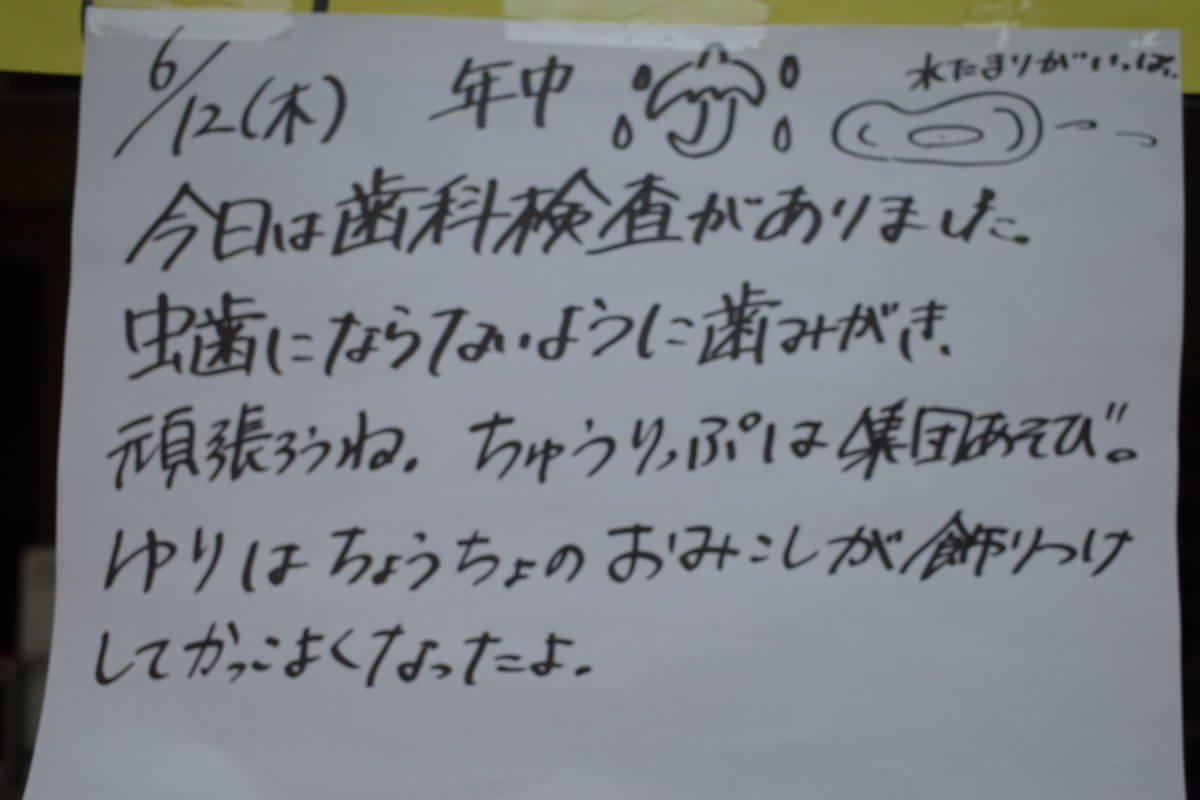 6/12(木) 年中 水たまりがいっぱい
今日は歯科検査がありました。
虫歯にならないように歯みがき、
頑張ろうね。ちゅうりっぷは集団あそび。
ゆりはちょうちょのおみこしが飾りつけ
してかっこよくなったよ。